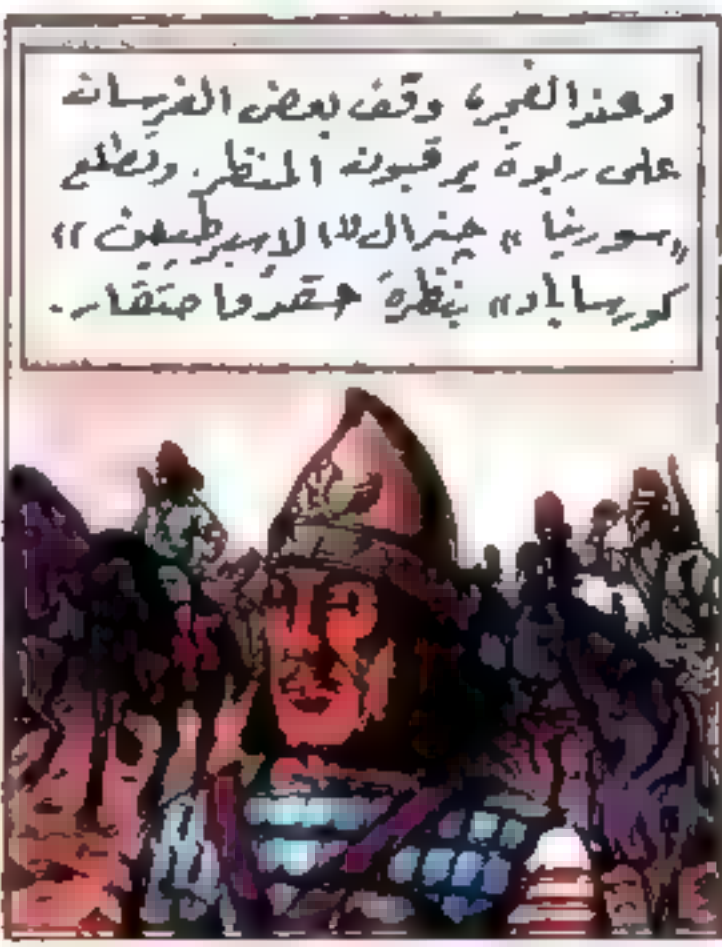 وعند الفجر، وقف بعض الفرسان
على ربوة يرقبون المنظر. وتطلع
«سورينا» جنرال
كورساباد» بنظرة حقد واحتقار.